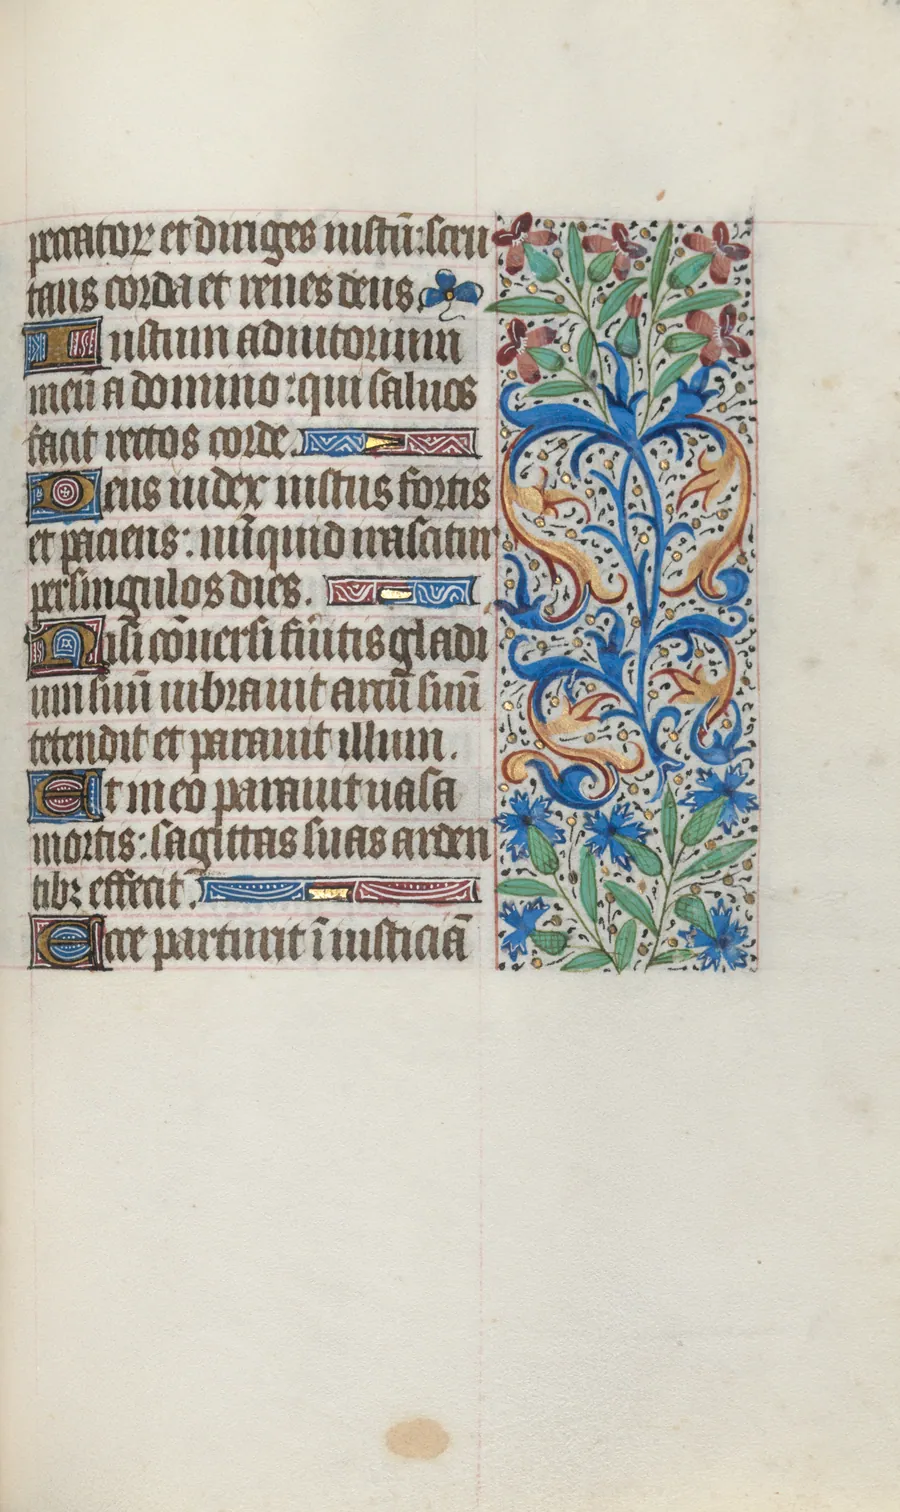 peccator et diriges iustū: scru
tans corda et renes deus
Iustum adiutorium
meū a domino: qui saluos
facit rectos corde.
Deus iudex iustus fortis
et paciens: nūquid irascitur
per singulos dies.
Nisi cōuersi fūitis gladi
um suū uibrauit arcū suū
tetendit et parauit illum.
Et in eo parauit uasa
mortis: sagittas suas arden
tibꝫ effecit.
Ecce parturit ī iusticiā